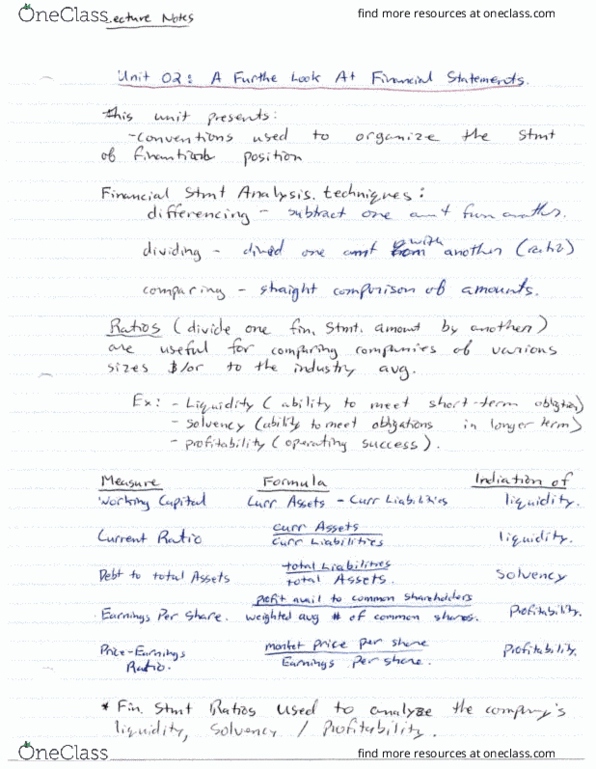 OneClass
find more resources at oneclass.com
Lecture Notes
Unit 02: A Furthe Look At Financial Statements.
this unit presents:
-conventions used to organize the Stmt
of financial position
Financial Stmt Analysis. techniques:
differencing - subtract one amt from another.
dividing - divid one amt with another (ratio)
comparing - straight comparison of amounts.
Ratios (divide one fin. Stmt. amount by another)
are useful for comparing companies of various
sizes &/or to the industry avg.
Ex: - Liquidity (ability to meet short-term obligation)
- solvency (ability to meet obligations in longer term)
- profitability (operating success).
Measure Formula Indiation of
Working Capital Curr Assets - Curr Liabilities liquidity.
Current Ratio curr Assets liquidity.
curr Liabilities
Debt to total Assets total Liabilities Solvency
total Assets.
Earnings Per Share. profit avail to common shareholders Profitability.
weighted avg # of common shares.
Price-Earnings market price per share Profitability.
Ratio. Earnings per share.
* Fin. Stmt Ratios used to analyze the company's
liquidity, Solvency / Profitability.
OneClass
find more resources at oneclass.com